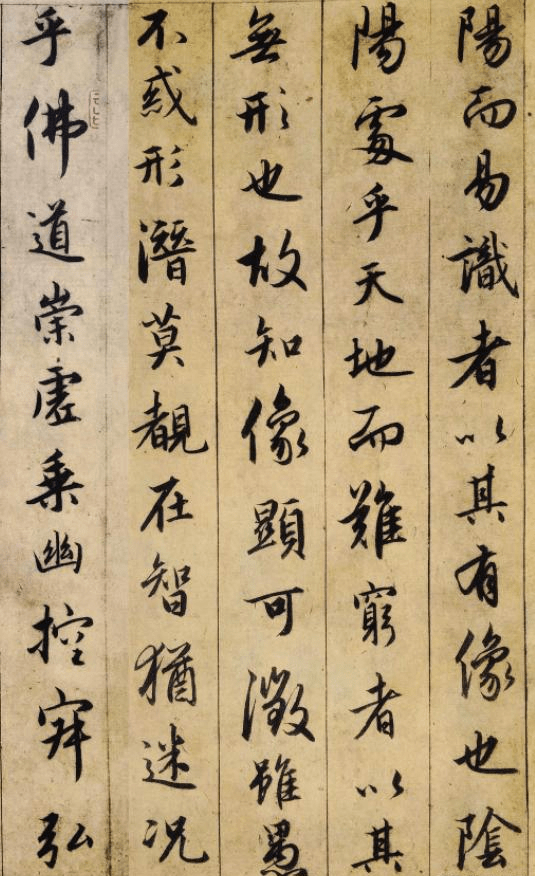 陽而易識者以其有像也陰
陽處乎天地而難窮者以其
無形也故知像顯可徵雖愚
不惑形潛莫覩在智猶迷況
乎佛道崇虛乘幽控寂弘